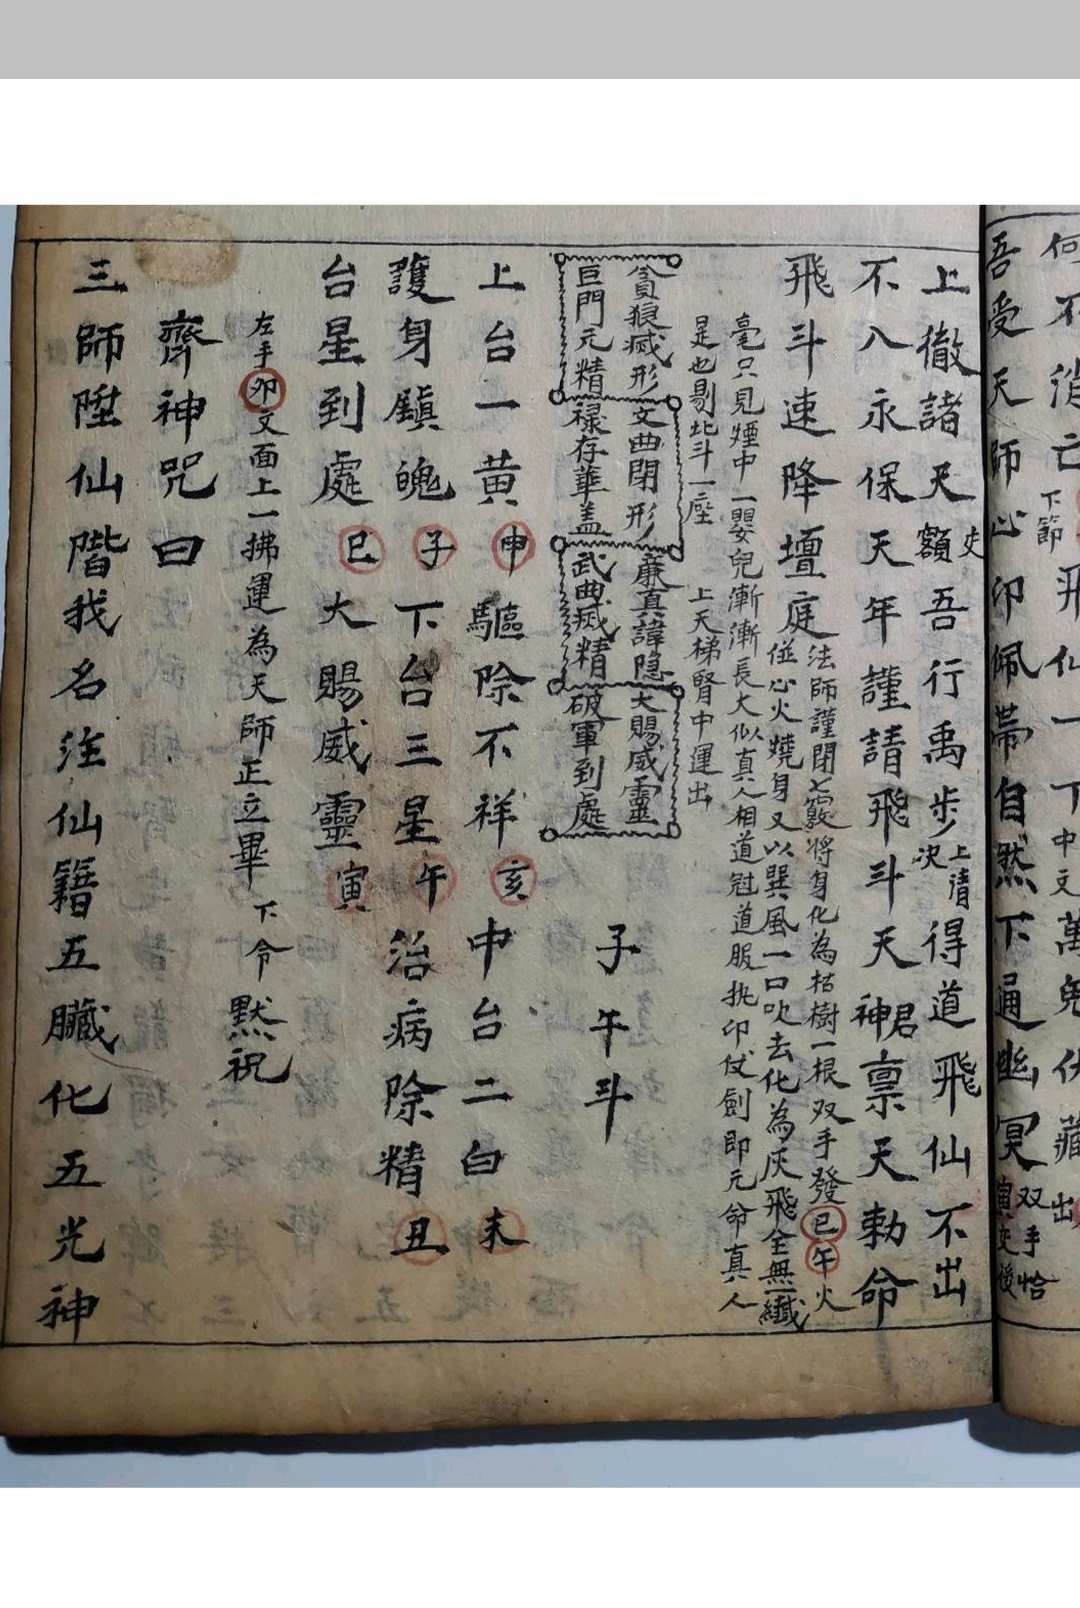 不消亡下節飛仙一丁中文萬鬼伏藏出
吾受天師心印佩帶自然下通幽冥双手恰後
上徹諸天額吾行禹步上清決得道飛仙不出
不入永保天年謹請飛斗天神君禀天勅命
飛斗速降壇庭法師謹閉七竅将身化為枯樹一根双手發巳午火
催心火燒身又以巽風一口吹去化為灰飛全無纖
毫只見煙中一嬰兒漸漸長大似真人相道冠道服执印仗劍即元命真人
是也剔北斗一座 上天梯腎中運出
貪狼㓕形文曲閉形廉真諱隐大賜威靈
巨門元精禄存華盖武曲㓕精破軍到處
子午斗
上台一黄申驅除不祥亥中台二白未
護身鎮魄子下台三星午治病除精丑
台星到處巳大賜威靈寅
左手卯文面上一拂運為天師正立畢下令默祝
齊神咒曰
三師陞仙階我名注仙籍五臟化五光神